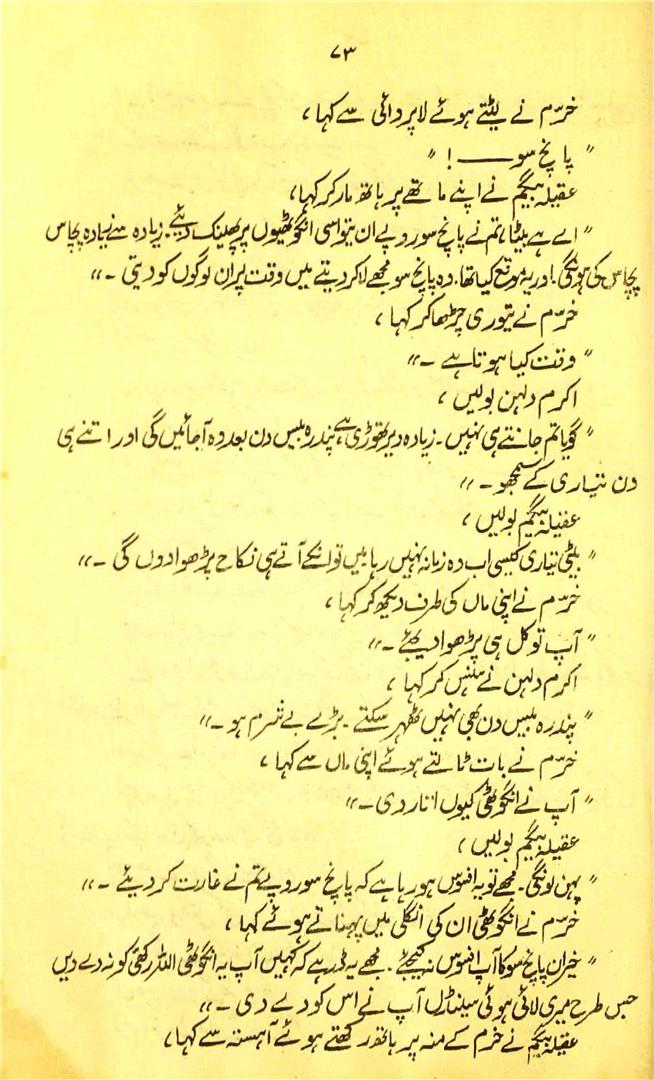 ۷۳
خرّم نے لیٹتے ہوئے لاپروائی سے کہا،
"پانچ سو ——— !"
عقیلہ بیگم نے اپنے ماتھے پر ہاتھ مار کر کہا،
"اے ہے بیٹا، تم نے پانچ سو روپے ان نیواسی انگوٹھیوں پر پھینک دیئے۔ زیادہ سے زیادہ پچاس
پچاس کی ہونگی۔ اور یہ موقع کیا تھا۔ وہ پانچ سو مجھے لاکر دیتے میں وقت پر ان لوگوں کو دیتی ۔"
خرّم نے تیوری چڑھا کر کہا،
"وقت کیا ہوتا ہے ۔"
اکرم دلہن بولیں،
"گویا تم جانتے ہی نہیں۔ زیادہ دیر تھوڑی ہے، پندرہ بیس دن بعد وہ آجائیں گی اور اتنے ہی
دن تیاری کے سمجھو ۔"
عقیلہ بیگم بولیں،
"بیٹی تیاری کیسی اب وہ زمانہ نہیں رہا میں تو انکے آتے ہی نکاح پڑھوا دوں گی ۔"
خرّم نے اپنی ماں کی طرف دیکھ کر کہا،
"آپ تو کل ہی پڑھوا دیجئے ۔"
اکرم دلہن نے ہنس کر کہا،
"پندرہ بیس دن بھی نہیں ٹھہر سکتے۔ بڑے بے شرم ہو ۔"
خرّم نے بات ٹالتے ہوئے اپنی ماں سے کہا،
"آپ نے انگوٹھی کیوں اتار دی ۔"
عقیلہ بیگم بولیں،
"پہن لونگی۔ مجھے تو یہ افسوس ہو رہا ہے کہ پانچ سو روپے تم نے غارت کر دیئے ۔"
خرّم نے انگوٹھی ان کی انگلی میں پہناتے ہوئے کہا،
"خیر ان پانچ سو کا آپ افسوس نہ کیجئے۔ مجھے یہ ڈر ہے کہ کہیں آپ یہ انگوٹھی اللہ رکھی کو نہ دے دیں
جس طرح میری لائی ہوئی سینڈل آپ نے اس کو دے دی ۔"
عقیلہ بیگم نے خرم کے منہ پر ہاتھ رکھتے ہوئے آہستہ سے کہا،